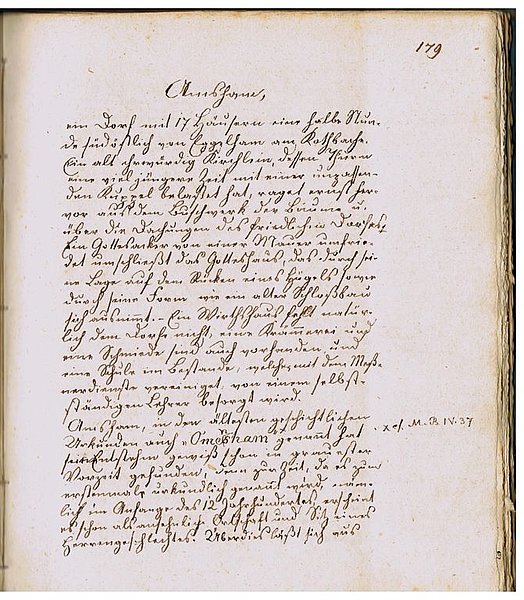 179
Amsham,
ein Dorf mit 17 Häusern eine halbe Stun-
de südöstlich von Eggelham am Rothbache.
Ein alt ehrwürdig Kirchlein, dessen Thurm
eine viel jüngere Zeit mit einer unpassen-
den Kuppel belastet hat, raget ernst her-
vor aus dem Buschwerk der Bäume u.
über die Dachungen des friedlichen Dorfes.
Ein Gottesacker von einer Mauer umfrie-
det umschließt das Gotteshaus, das durch sei-
ne Lage auf dem Rücken eines Hügels sowie
durch seine Form wie ein alter Schloßbau
sich ausnimmt. – Ein Wirthshaus fehlt natür-
lich dem Dorfe nicht, eine Krämerei und
eine Schmiede sind auch vorhanden und
eine Schule im Bestande, welche mit dem Meß-
nerdienste vereiniget, von einem selbst-
ständigen Lehrer besorgt wird.
Amsham, in den ältesten geschichtlichen
Urkunden auch "Omesham genannt hat
sein Entstehen gewiß schon in grauester
Vorzeit gefunden, denn zur Zeit, da es zum
erstenmale urkundlich genannt wird, näm-
lich im Anfange des 12 Jahrhundertes, erscheint
es schon als ansehnliche Ortschaft und Sitz eines
Herrengeschlechtes. Überdies läßt sich aus
x cf. M. B. IV. 37